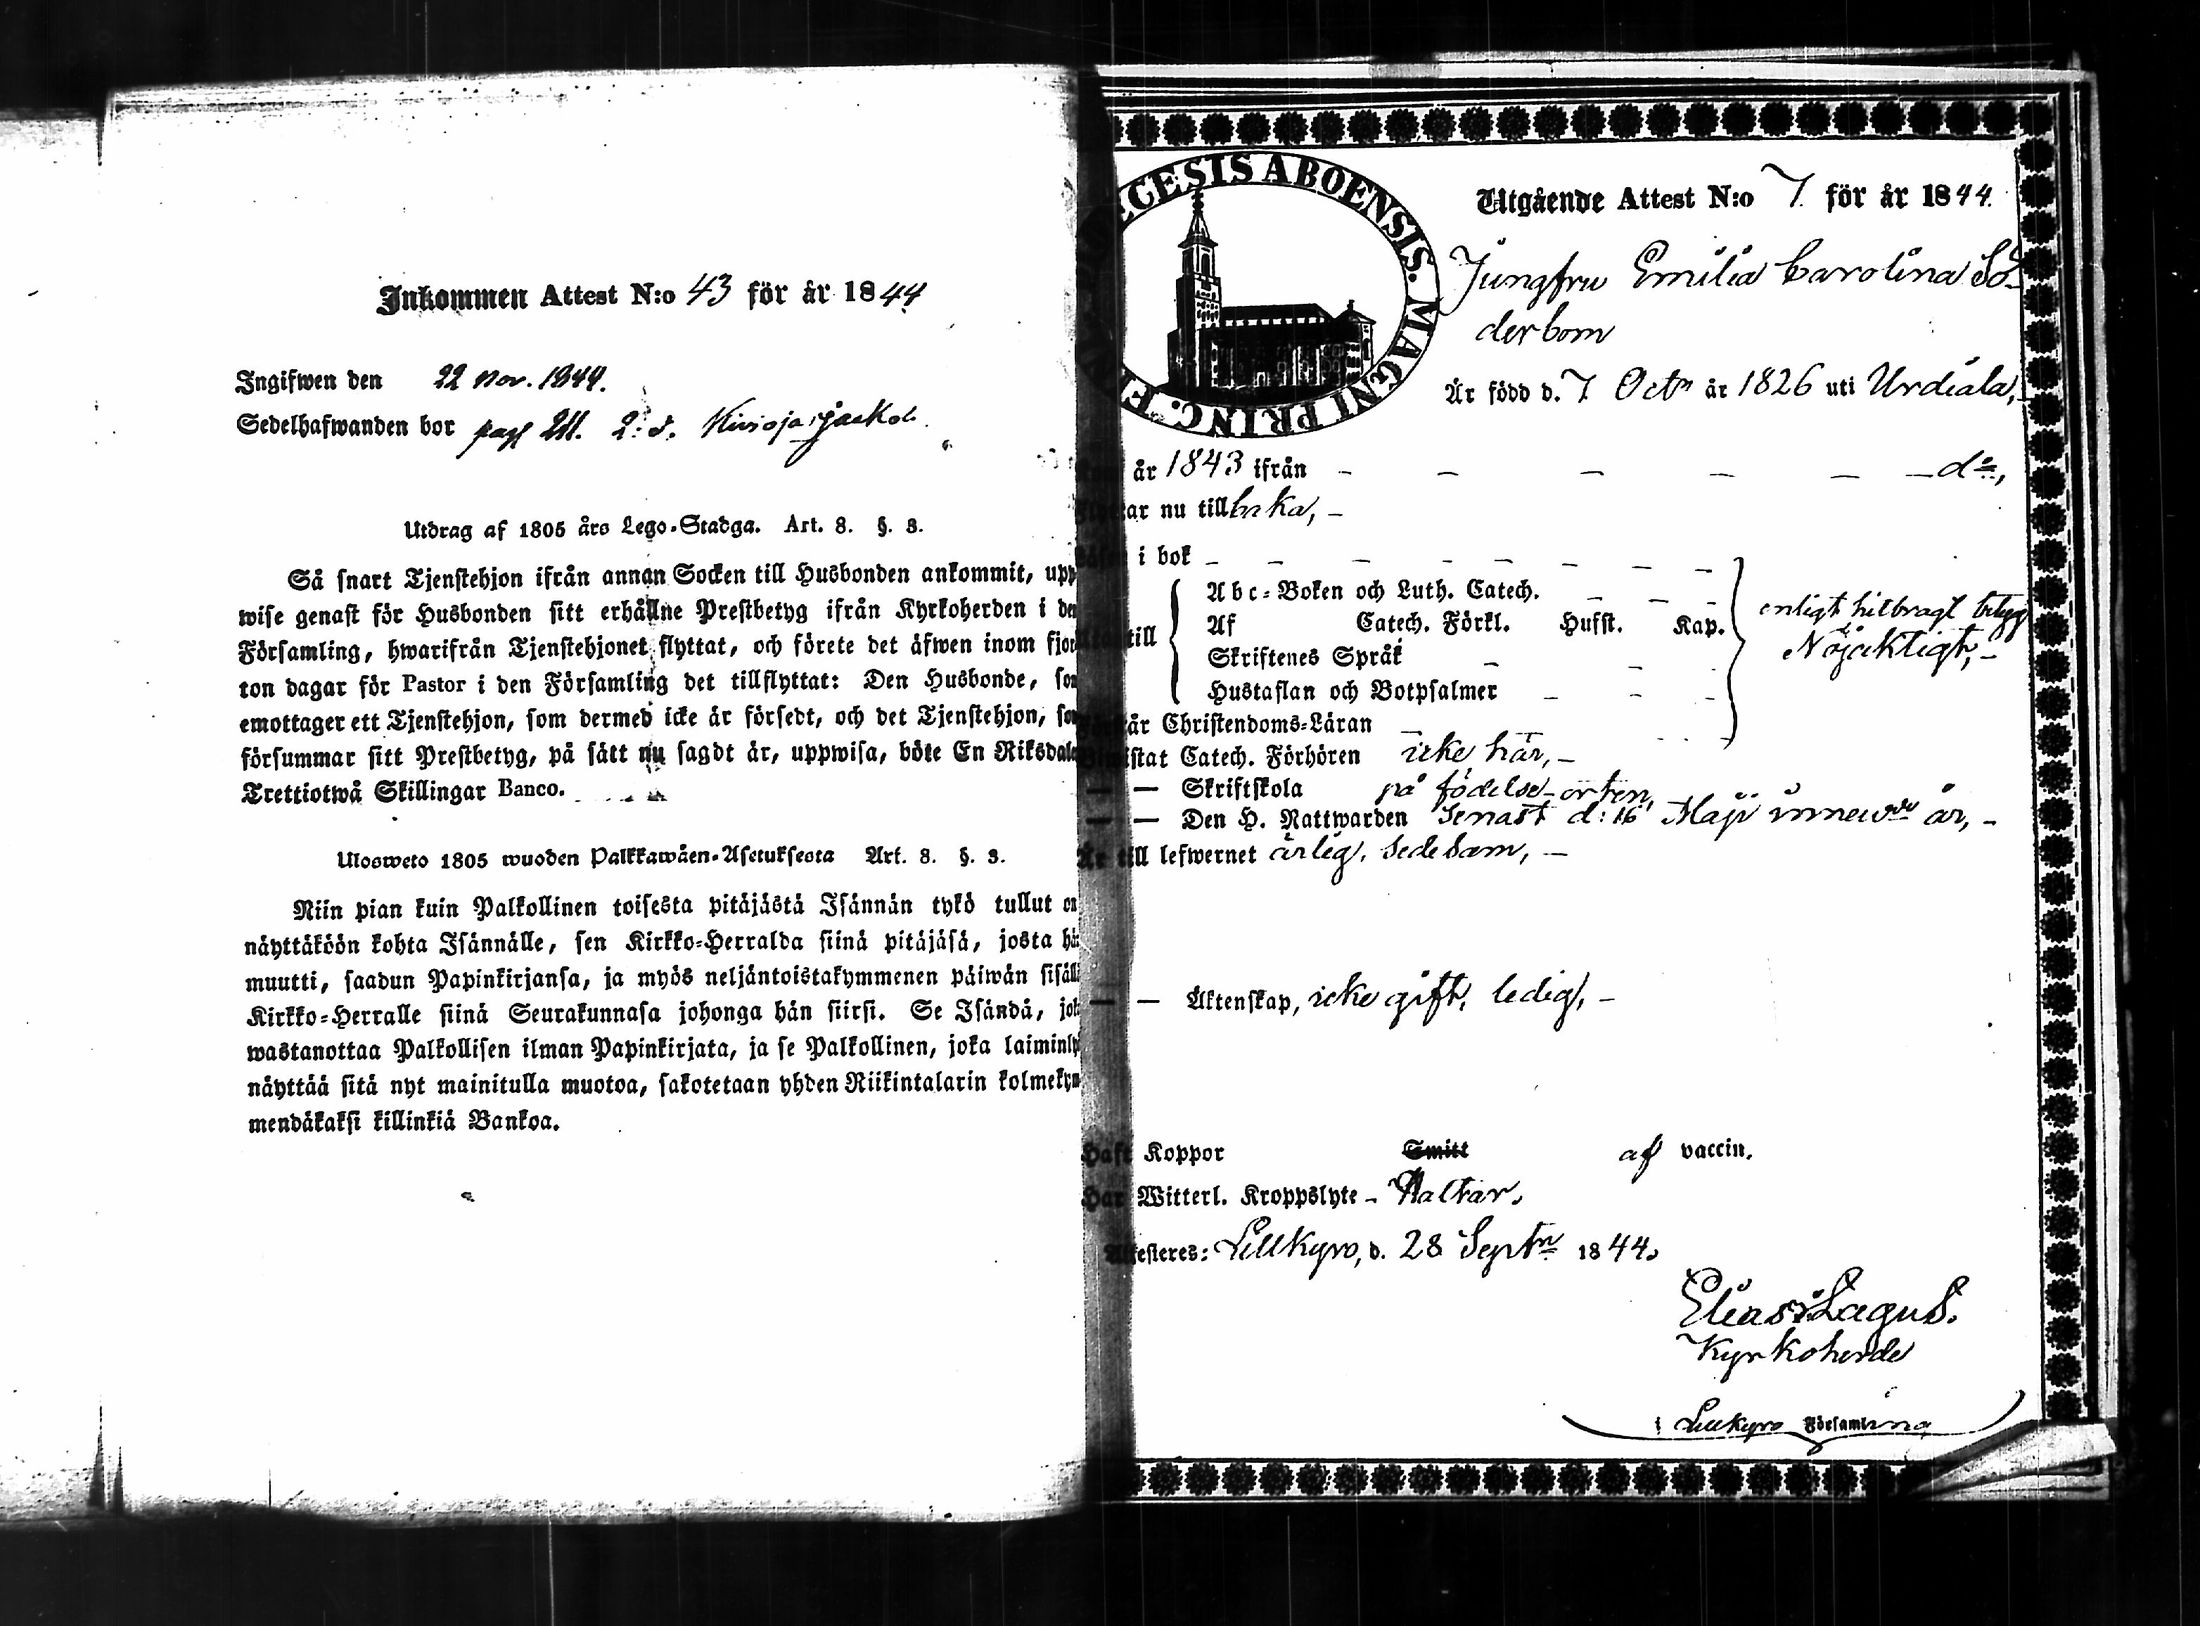 Inkommen Attest N:o 43 för år 1844
Ingifwen den 22 Nov. 1844.
Sedelhafwanden bor pag
Utdrag af 1805 års Lego-Stadga. Art. 8. §. 3.
Så snart Tjenstehjon ifrån annan Socken till Husbonden ankommit, upp
wise genast för Husbonden sitt erhållne Prestbetyg ifrån Kyrkoherden i den
Församling, hwarifrån Tjenstehjonet flyttat, och förete det äfwen inom fjor
ton dagar för Pastor i den Församling det tillflyttat: Den Husbonde, som
emottager ett Tjenstehjon, som dermed icke är försedt, och det Tjenstehjon, som
försummar sitt Prestbetyg, på sätt nu sagdt är, uppwisa, böte En Riksdaler
Trettiotwå Skillingar Banco.
Ulosweto 1805 wuoden Palkkawäen-Asetuksesta Art. 8. §. 3.
Niin pian kuin Palkollinen toisesta pitäjästä Isännän tykö tullut on
näyttäköön kohta Isännälle, sen Kirkko-Herralda siinä pitäjäsä, josta hän
muutti, saadun Papinkirjansa, ja myös neljäntoistakymmenen päiwän sisällä
Kirkko-Herralle siinä Seurakunnasa johonga hän siirsi. Se Isändä, joka
wastanottaa Palkollisen ilman Papinkirjata, ja se Palkollinen, joka laiminly
näyttää sitä nyt mainitulla muotoa, sakotetaan yhden Riikintalarin kolmekym
mendäkaksi killinkiä Bankoa.
ECESIS ABOENSIS. MAGNI PRINC. F
Utgående Attest N:o 7. för år 1844.
Jungfru Emilia Carolina Sö-
derbom
Är född d. 7 Octr år 1826 uti Urdiala,
år 1843 ifrån - - - - - - d:o,
ar nu tillbaka, -
i bok - - - - - - - -
Abc-Boken och Luth. Catech. - - -
Af Catech. Förkl. Husst. Kap.
enligt hitbragt betyg
till
Skriftenes Språk - - -
Nöjaktigt, -
Hustaflan och Botpsalmer - - -
år Christendoms-Läran -
istat Catech. Förhören icke här, -
— — Skriftskola på födelse-orten,
— — Den H. Nattwarden senast d: 16 Maji år, -
Är till lefwernet ärlig, sedesam, -
— — Äktenskap, icke gift, ledig, -
Haft Koppor Smitt af vaccin.
Har Witterl. Kroppslyte - Haltar.
Attesteres: Lillkyro, d. 28 Septr 1844.
Elias Lagus.
Kyrkoherde
i Lillkyro Församling